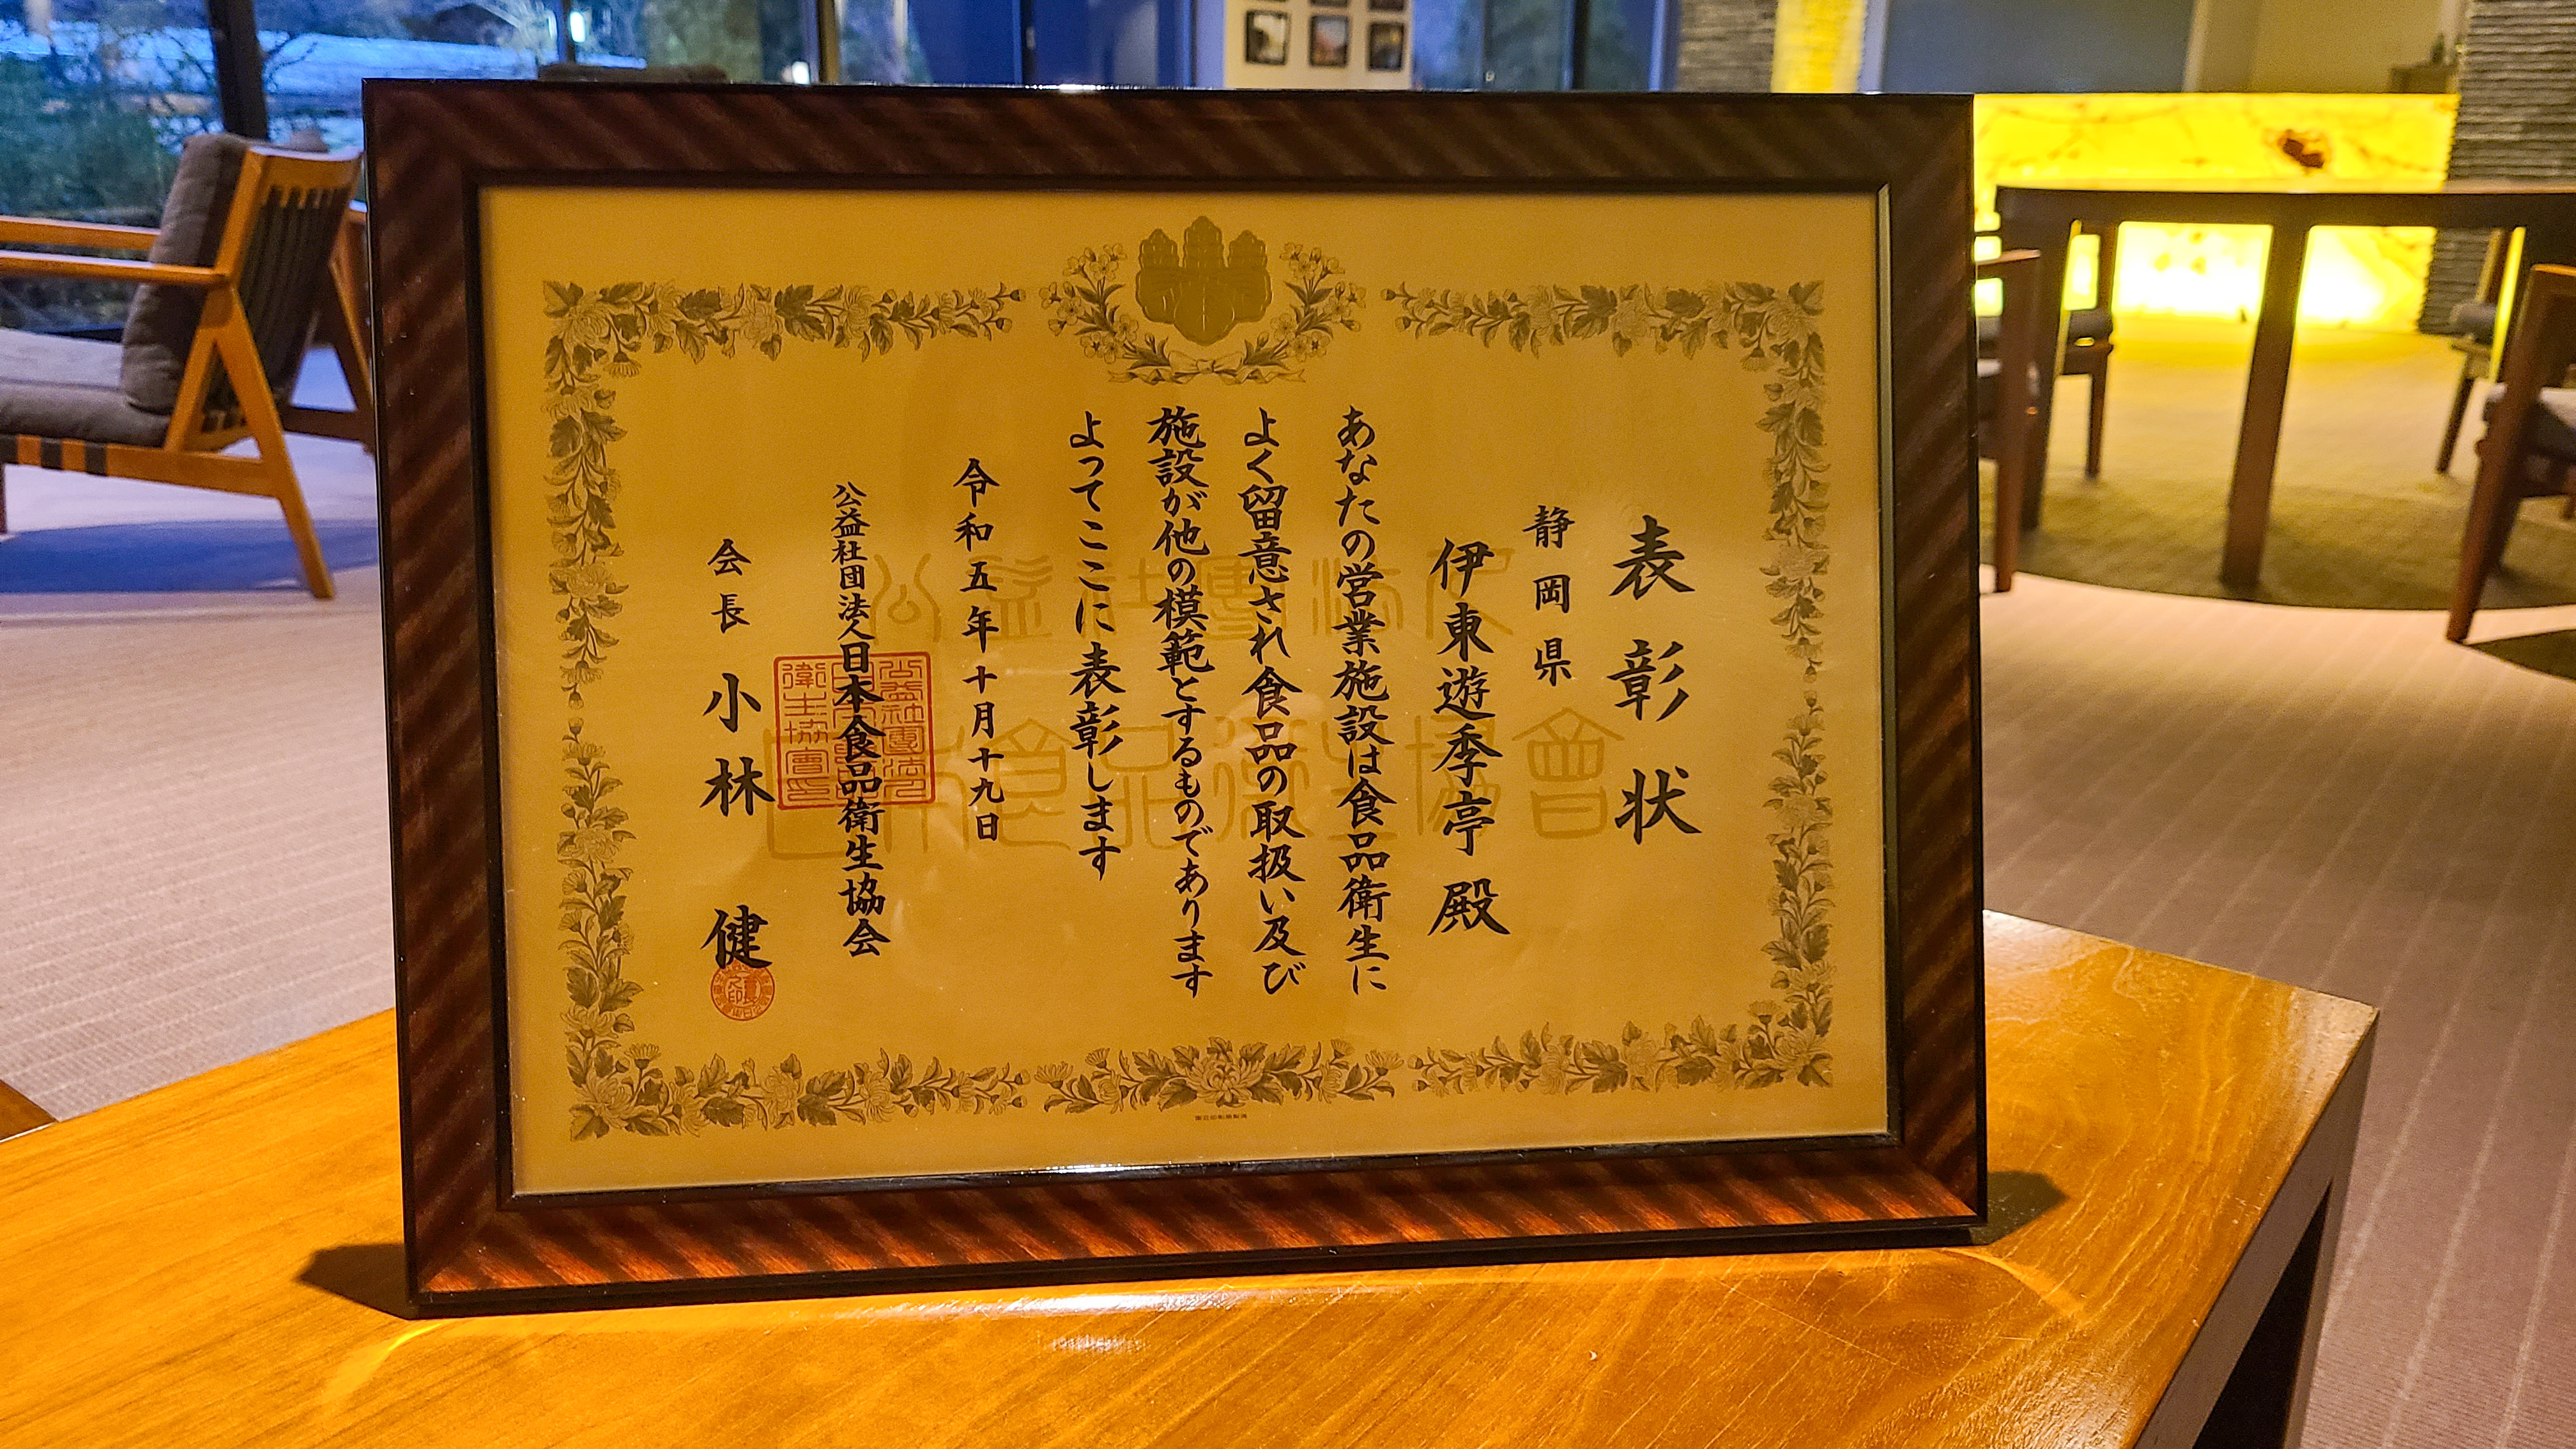 表彰状
静岡県
伊東遊季亭 殿
あなたの営業施設は食品衛生に
よく留意され食品の取扱い及び
施設が他の模範とするものであります
よってここに表彰します
令和五年十月十九日
公益社団法人日本食品衛生協会
会長 小林 健